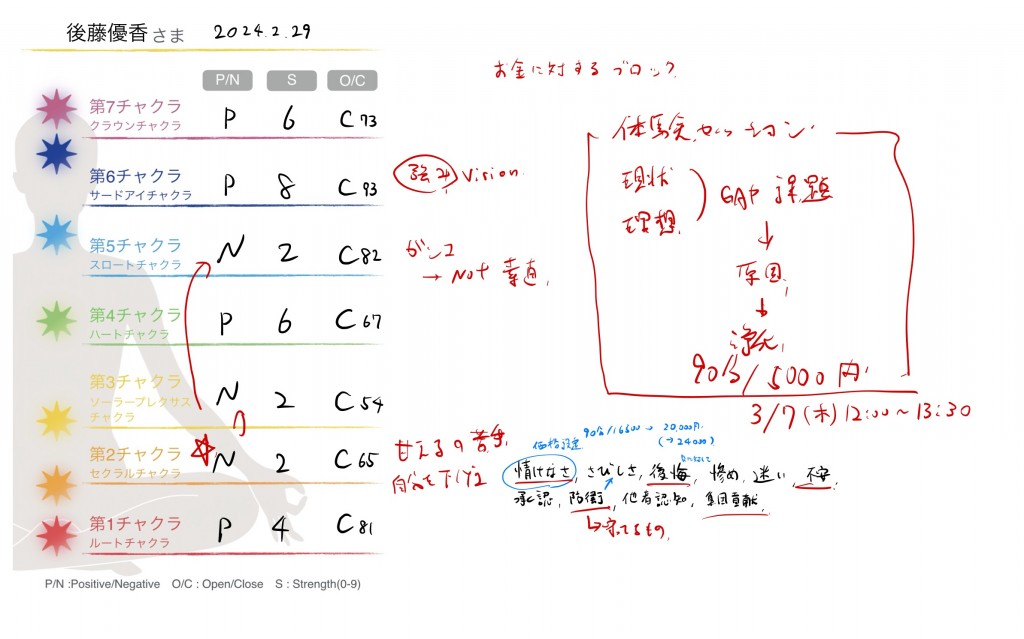 後藤優香さま 2024.2.29
P/N S O/C
第7チャクラ
クラウンチャクラ
P 6 C 73
第6チャクラ
サードアイチャクラ
P 8 C 93
強み Vision
第5チャクラ
スロートチャクラ
N 2 C 82
ガンコ
→ Not 素直
第4チャクラ
ハートチャクラ
P 6 C 67
第3チャクラ
ソーラープレクサス
チャクラ
N 2 C 54
第2チャクラ
セクラルチャクラ
N 2 C 65
甘えるの苦手
自分を下げる
第1チャクラ
ルートチャクラ
P 4 C 81
P/N :Positive/Negative O/C : Open/Close S : Strength(0-9)
お金に対するブロック
体験セッション
現状
理想
GAP 課題
↓
原因
↓
浄化
90分/5000円
3/7(木)12:00~13:30
90分/16500 → 20,000円
(→24000)
価格設定
情けなさ, さびしさ, 後悔, 惨め, 迷い, 不安
承認, 防衛, 他者認知, 集団貢献
↳守ってるもの